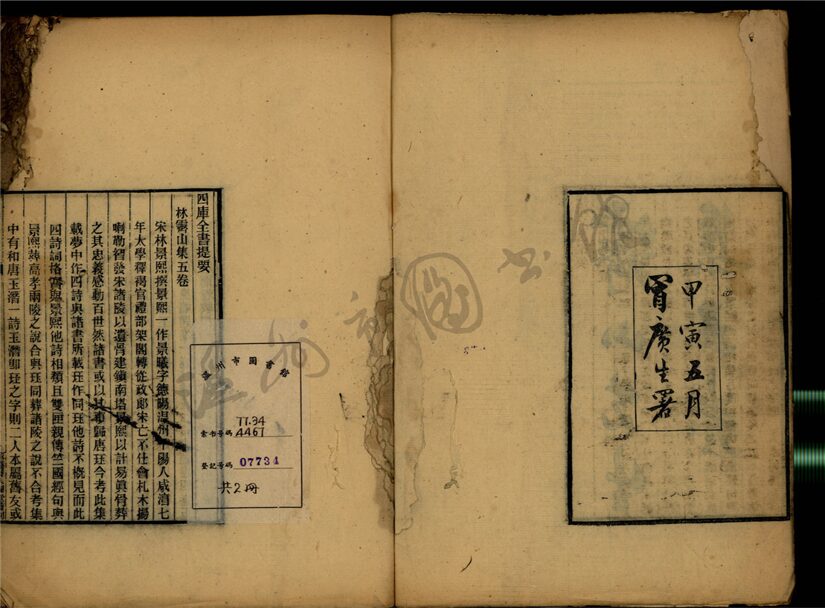 甲寅五月
冒廣生署
四庫全書提要
林霽山集五卷
宋林景熙撰景熙一作景曦字德陽温州平陽人咸淳七
年太學釋褐官禮部架閣轉從政郎宋亡不仕會札木揚
喇勒智發宋諸陵以遺骨建鎮南塔景熙以計易眞骨葬
之其忠義感動百世然諸書或以其事歸唐珏今考此集
載夢中作四詩與諸書所載珏作同珏他詩不概見而此
四詩詞格實與景熙他詩相類且雙匣親傳竺國經句與
景熙葬高孝兩陵之說合與珏同葬諸陵之說不合考集
中有和唐玉潛一詩玉潛卽珏之字則二人本屬舊友或
溫州市圖書館
77.34
索書号碼 4467
登記号碼 07734
共2冊
溫州市圖書館